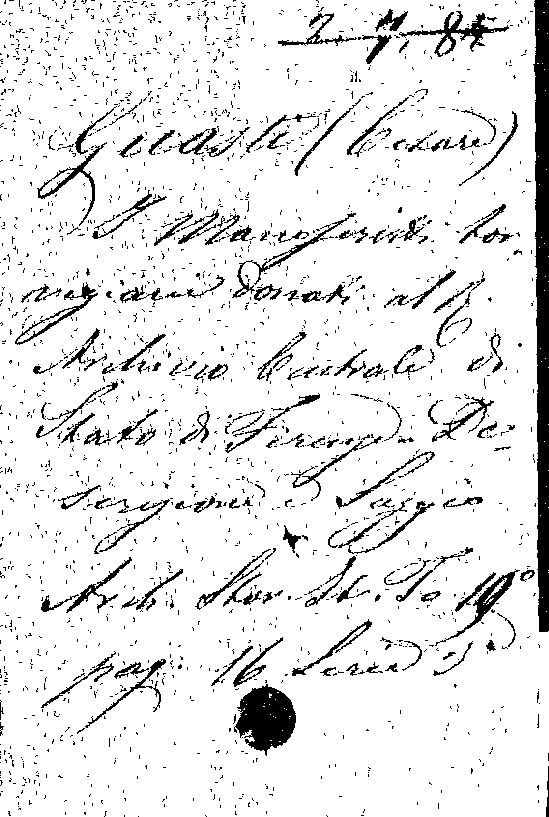 Guasti (Cesare)
I Manoscritti Tor-
rigiani donati al R.
Archivio Centrale di
Stato di Firenze. De-
scrizione e Saggio
Arch. Stor. It. To 19°
pag. 16 Serie 3ª